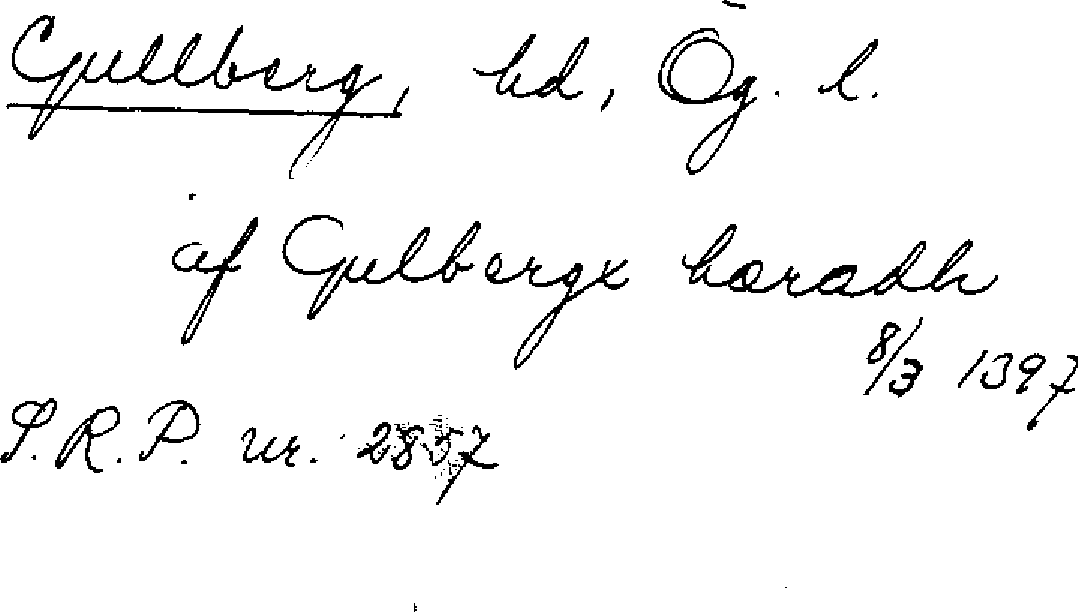 Gullberg, hd, Ög. l.
af Gulbergx hæradh
8/3 1397
S.R.P. nr. 2857